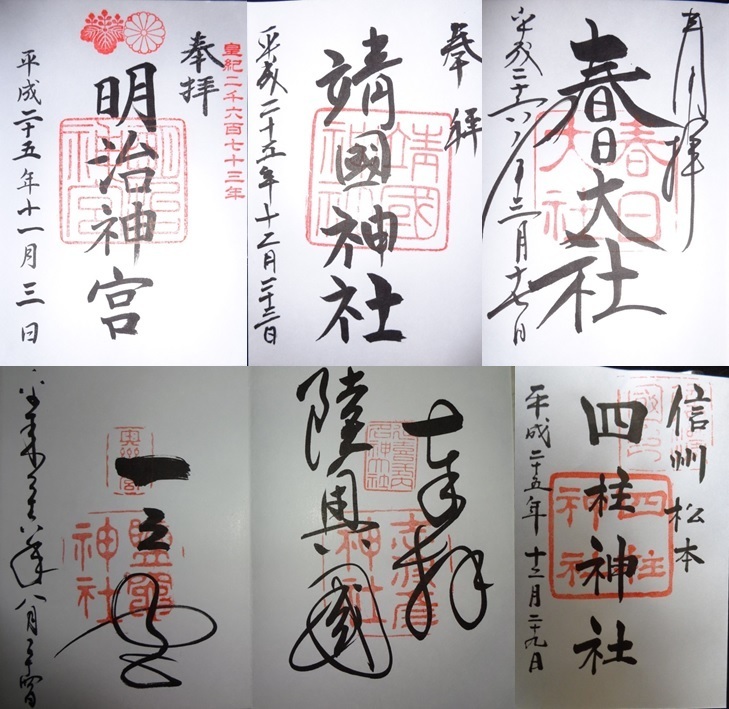 皇紀二千六百七十三年
奉拝
明治神宮
明治神宮
平成二十五年十一月三日
奉拝
靖國神社
靖國神社
平成二十五年十二月二十三日
奉拝
春日大社
春日大社
平成二十六年三月十七日
一之宮
鹽竈神社
八月二十四日
奉拝
志波彦神社
陸奥國
信州松本
四柱神社
四柱神社
平成二十五年十二月二十九日